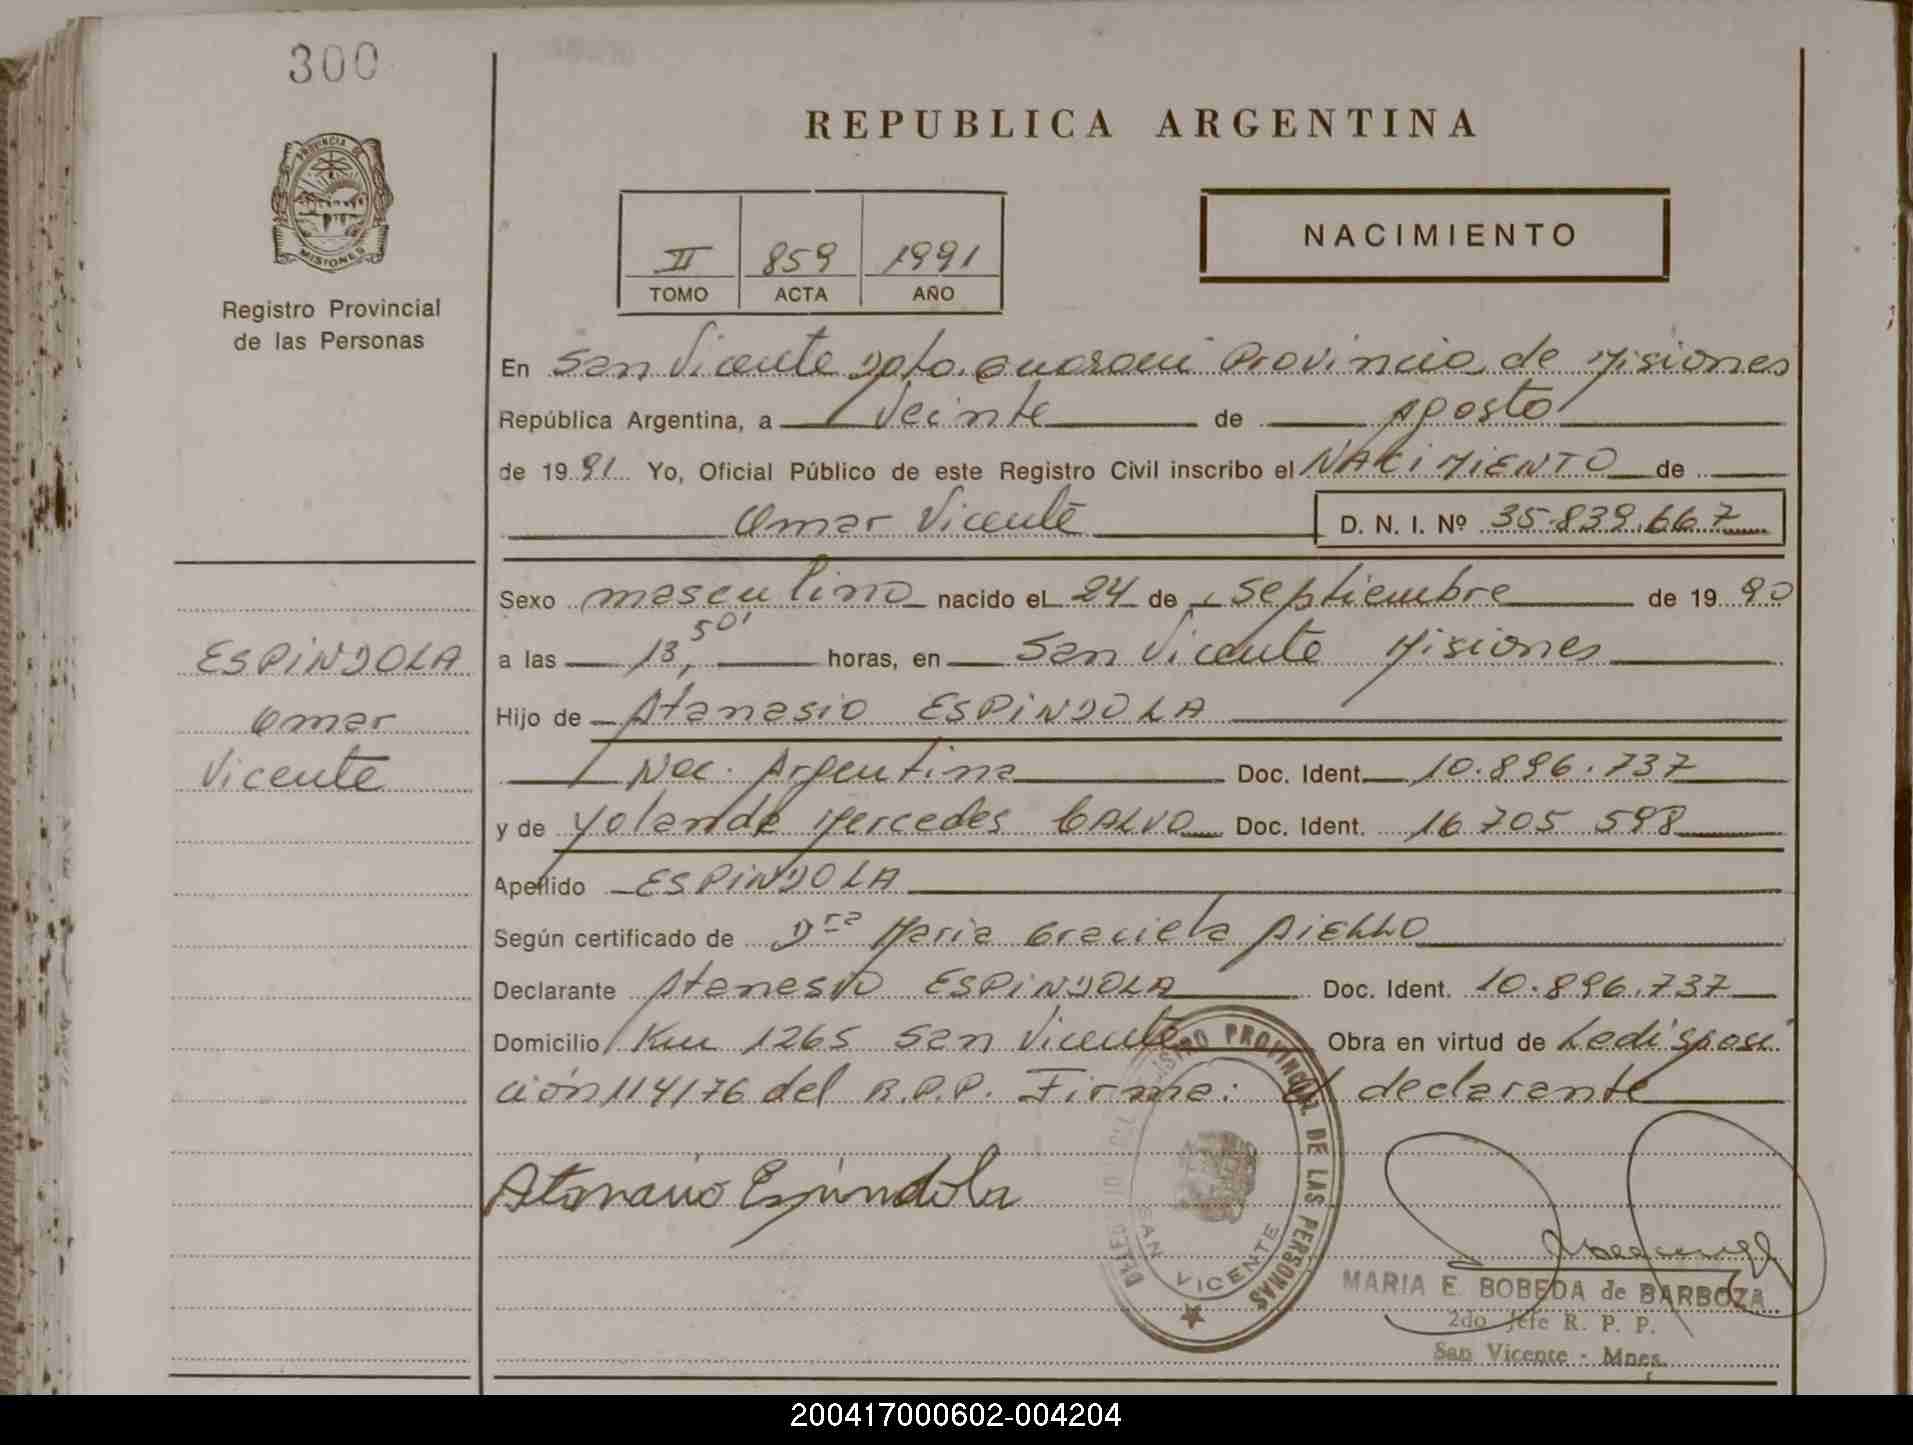 300
REPUBLICA ARGENTINA
PROVINCIA DE
MISIONES
Registro Provincial
de las Personas
II 859 1991
TOMO ACTA AÑO
NACIMIENTO
En San Vicente Dpto. Guarani Provincia de Misiones
República Argentina, a Veinte de Agosto
de 1991 Yo, Oficial Público de este Registro Civil inscribo el NACIMIENTO de
Omar Vicente D. N. I. Nº 35.839.667
Sexo masculino nacido el 24 de septiembre de 1990
a las 13,50' horas, en San Vicente Misiones
Hijo de Atanasio ESPINDOLA
Nac. Argentina Doc. Ident. 10.896.737
y de Yolanda Mercedes CALVO Doc. Ident. 16 705 598
Apellido ESPINDOLA
Según certificado de Dra Maria Graciela AIELLO
Declarante Atanasio ESPINDOLA Doc. Ident. 10.896.737
Domicilio Km 1265 San Vicente Obra en virtud de La disposi
ción 114/76 del R.P.P. Firma: el declarante
ESPINDOLA
Omar
Vicente
Atanasio Espindola
REGISTRO PROVINCIAL DE LAS PERSONAS
SAN VICENTE
MARIA E. BOBEDA de BARBOZA
2do Jefe R. P. P.
San Vicente - Mnes.
200417000602-004204